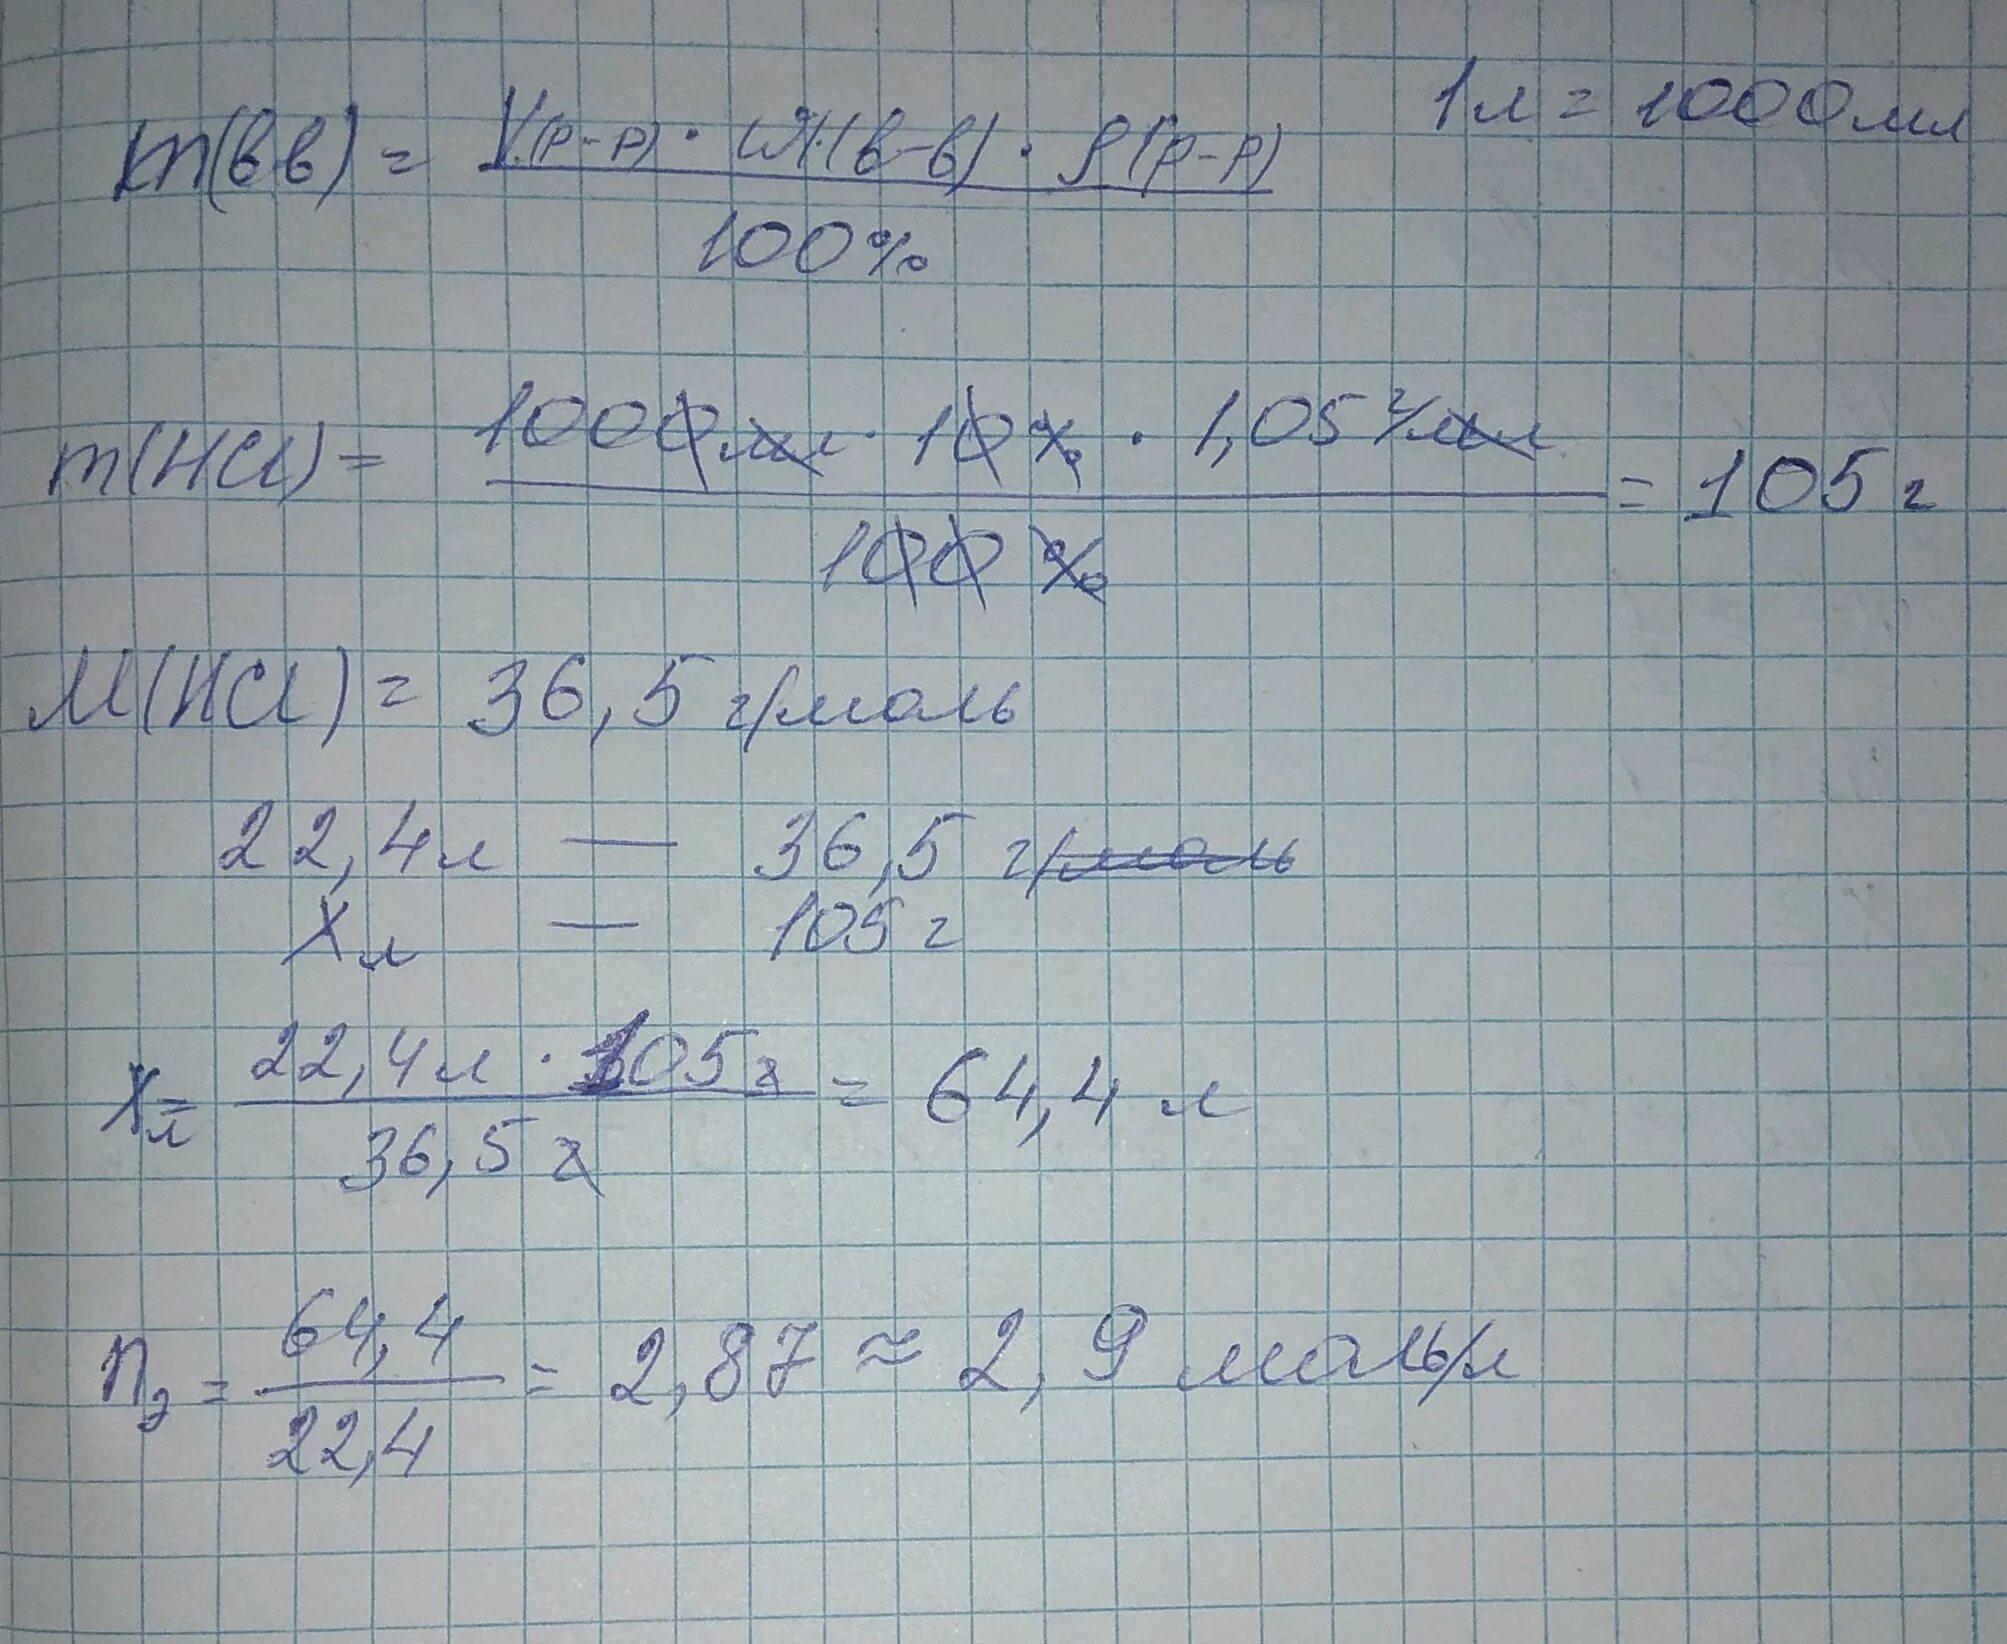 1л = 1000мл
m(вв) = V(р-р) · W%(в-в) · ρ(р-р)
100%
m(HCl) = 1000мл · 10% · 1,05 г/мл = 105 г
100 %
M(HCl) = 36,5 г/моль
22,4л — 36,5 г/моль
Xл — 105 г
Xл = 22,4л · 105г = 64,4 л
36,5 г
nэ = 64,4 = 2,87 ≈ 2,9 моль/л
22,4